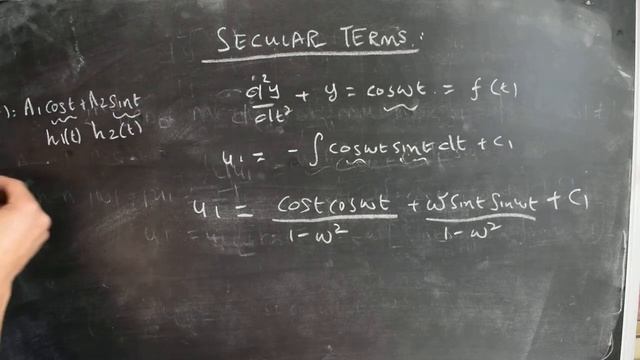 SECULAR TERMS:
d²y/dt² + y = cosωt = f(t)
): A1cost + A2sint
h1(t) h2(t)
u1 = - ∫ cosωt sint dt + C1
u1 = cost cosωt / 1-ω² + ω sint sinωt / 1-ω² + C1